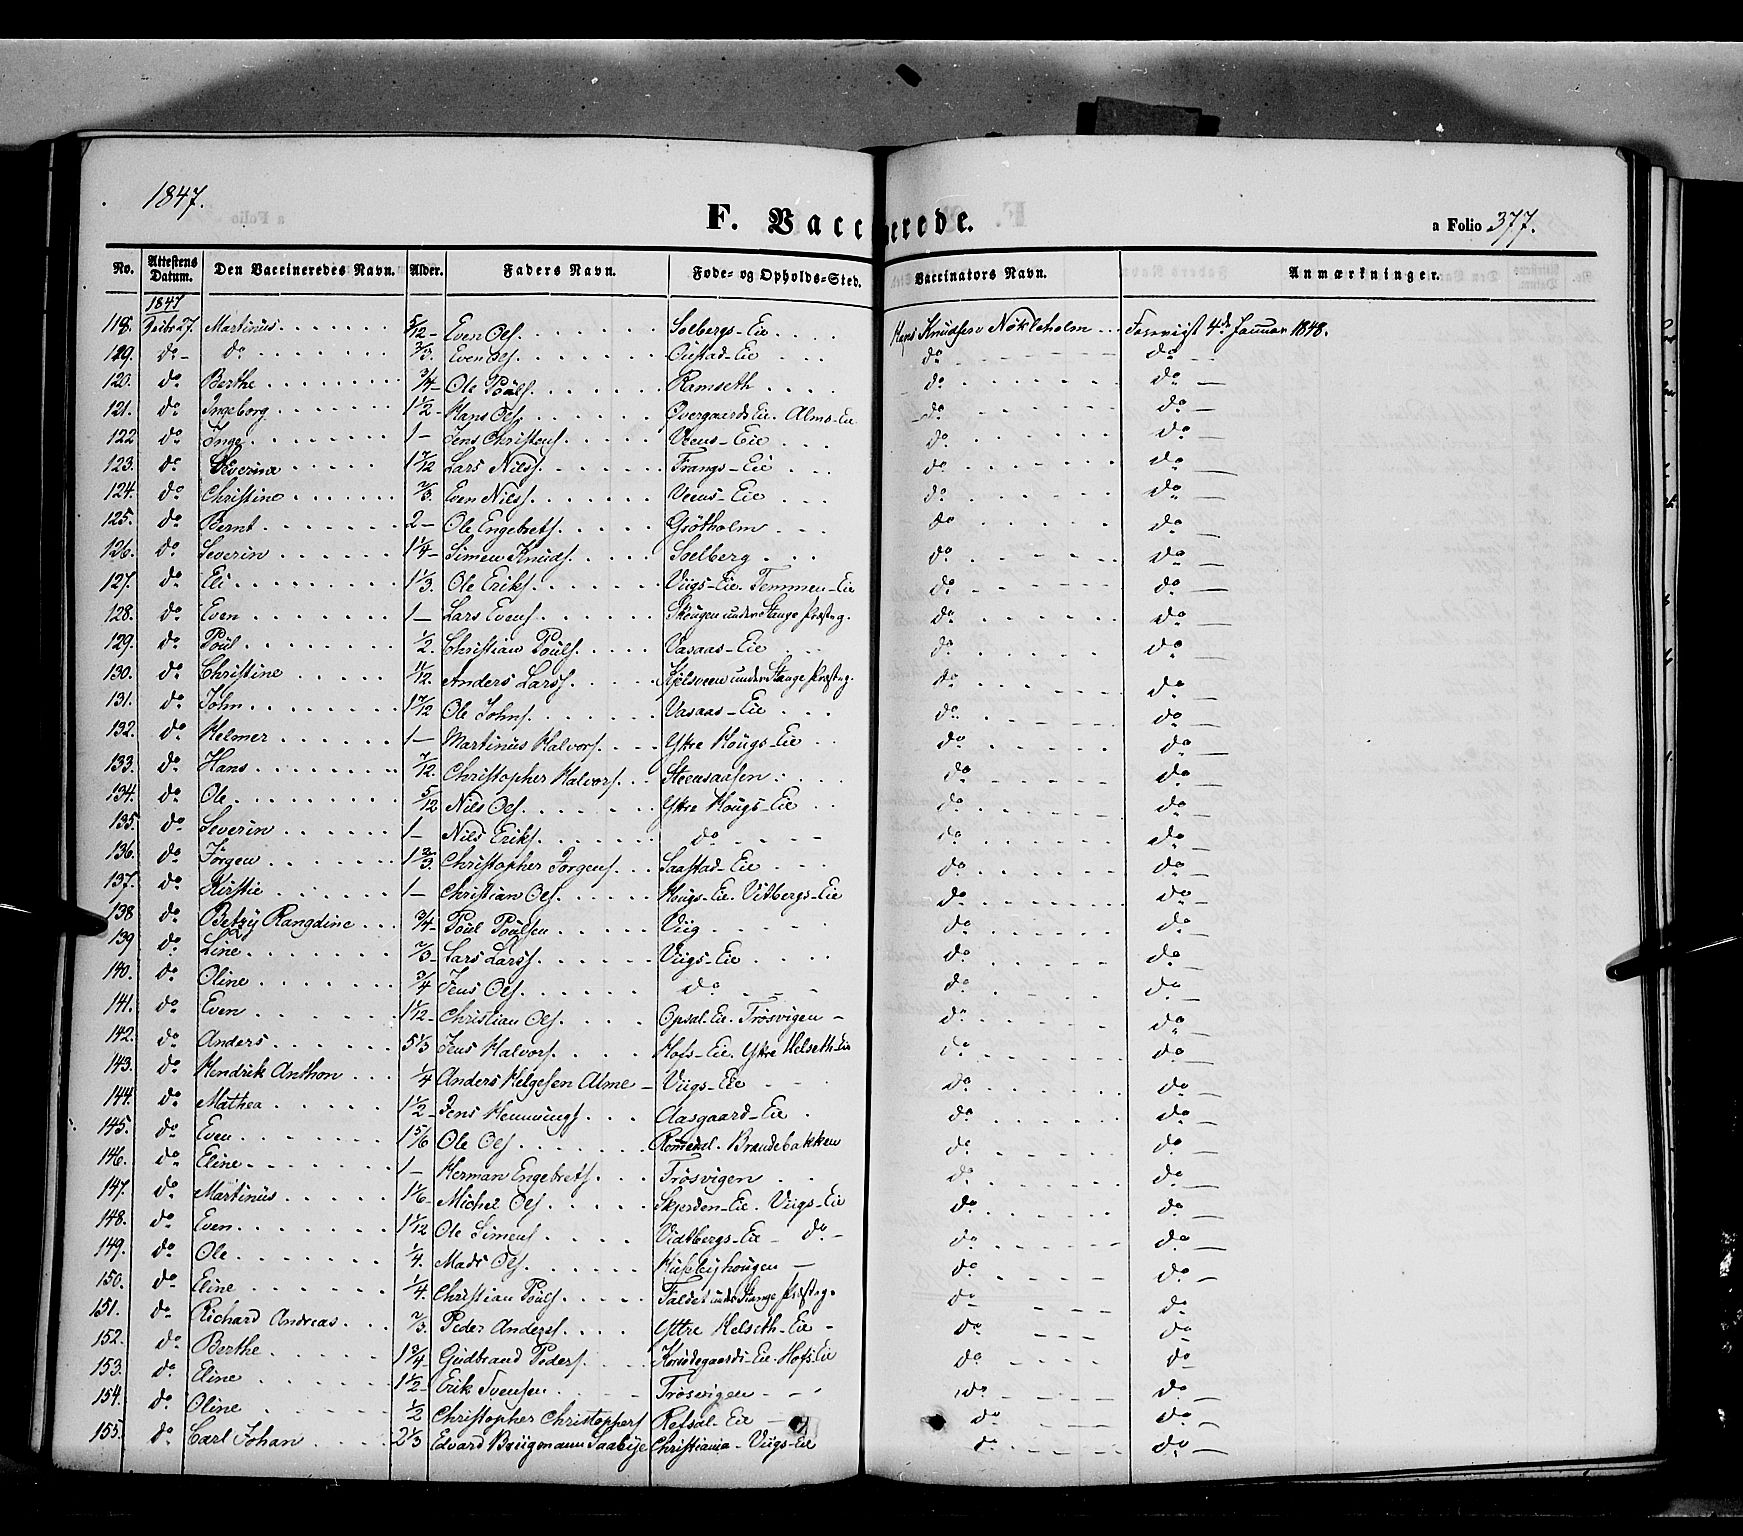 1847.
F. Vaccinerede.
a Folio 377.
No. Attestens Datum. Den Vaccineredes Navn. Alder. Faders Navn. Føde- og Opholds-Sted. Vaccinators Navn. Anmærkninger.
1847
118. Decbr 27. Martinus 5/12 Even Ols. Solbergs-Eie Hans Knudsen Nökleholm Forevigt 4de Januar 1848.
119. do do 2/3. Even Ols. Oustad-Eie do do
120. do Berthe 3/4 Ole Pouls. Ramseth do do
121. do Ingeborg 1 1/2 Hans Ols. Overgaards Eie. Alms-Eie do do
122 do Inge 1 Jens Christens. Veens-Eie do do
123. do Severine 1 7/12 Lars Nils. Frangs-Eie do do
124. do Christine 2/3. Even Nils. Veens-Eie do do
125. do Bernt 2 Ole Engebrets. Grötholm do do
126. do Severin 1 1/4 Simen Knuds. Solberg do do
127. do Eli 1 1/3. Ole Eriks. Viigs-Eie. Temmen-Eie do do
128. do Even 1 Lars Evens. Skougen under Stange Præsteg. do do
129. do Poul 1/2. Christian Pouls. Vasaas-Eie do do
130. do Christine 11/12. Anders Lars. Kjelsveen under Stange Præsteg. do do
131. do John 1 7/12 Ole Johns. Vasaas-Eie do do
132. do Helmer 1 Martinus Halvors. Ystre Hougs-Eie do do
133. do Hans 7/12. Christopher Halvors. Steensaasen do do
134. do Ole 5/12 Nils Ols. Ystre Hougs-Eie do do
135. do Severin 1 Nils Eriks. do do do
136. do Jörgen 1 2/3. Christopher Jörgens. Saastad-Eie do do
137. do Kirstie 1 Christian Ols. Hougs-Eie. Vitbergs-Eie do do
138 do Betzy Rangdine 3/4 Poul Poulsen Viig do do
139 do Line 2/3 Lars Lars. Viigs-Eie do do
140. do Oline 3/4 Jens Ols. do do do
141. do Even 1 1/2 Christian Ols. Opsal-Eie. Frösvigen do do
142. do Anders 5 1/3 Jens Halvors. Hofs-Eie. Ystre Helseth-Eie do do
143. do Hendrik Anthon 1/4 Anders Helgesen Alme Viigs-Eie do do
144. do Mathea 1 1/2 Jens Hennings. Aasgaard-Eie do do
145. do Even 1 5/6 Ole Ols. Romedal. Brændebakken do do
146. do Eline 1 Herman Engebrets. Frösvigen do do
147. do Martinus 1 1/6 Michel Ols. Skjerden-Eie. Viigs-Eie do do
148. do Even 1 1/12 Ole Simens. Vidtbergs-Eie do do do
149. do Ole 1/4. Mads Ols. Huselyhougen do do
150. do Eline 1/4. Christian Pouls. Faldet under Stange Præsteg. do do
151. do Richard Andreas 2/3. Peder Anders. Ystre Helseth-Eie do do
152. do Berthe 1 3/4 Gudbrand Peders. Korsödegaards-Eie. Hofs-Eie do do
153. do Eline 1 1/2 Erik Svensen Frösvigen do do
154. do Oline 1/2 Christopher Christophers. Refsal-Eie do do
155. do Carl Johan 2 1/3 Edvard Brügmann Saabye Christiania-Viigs-Eie do do